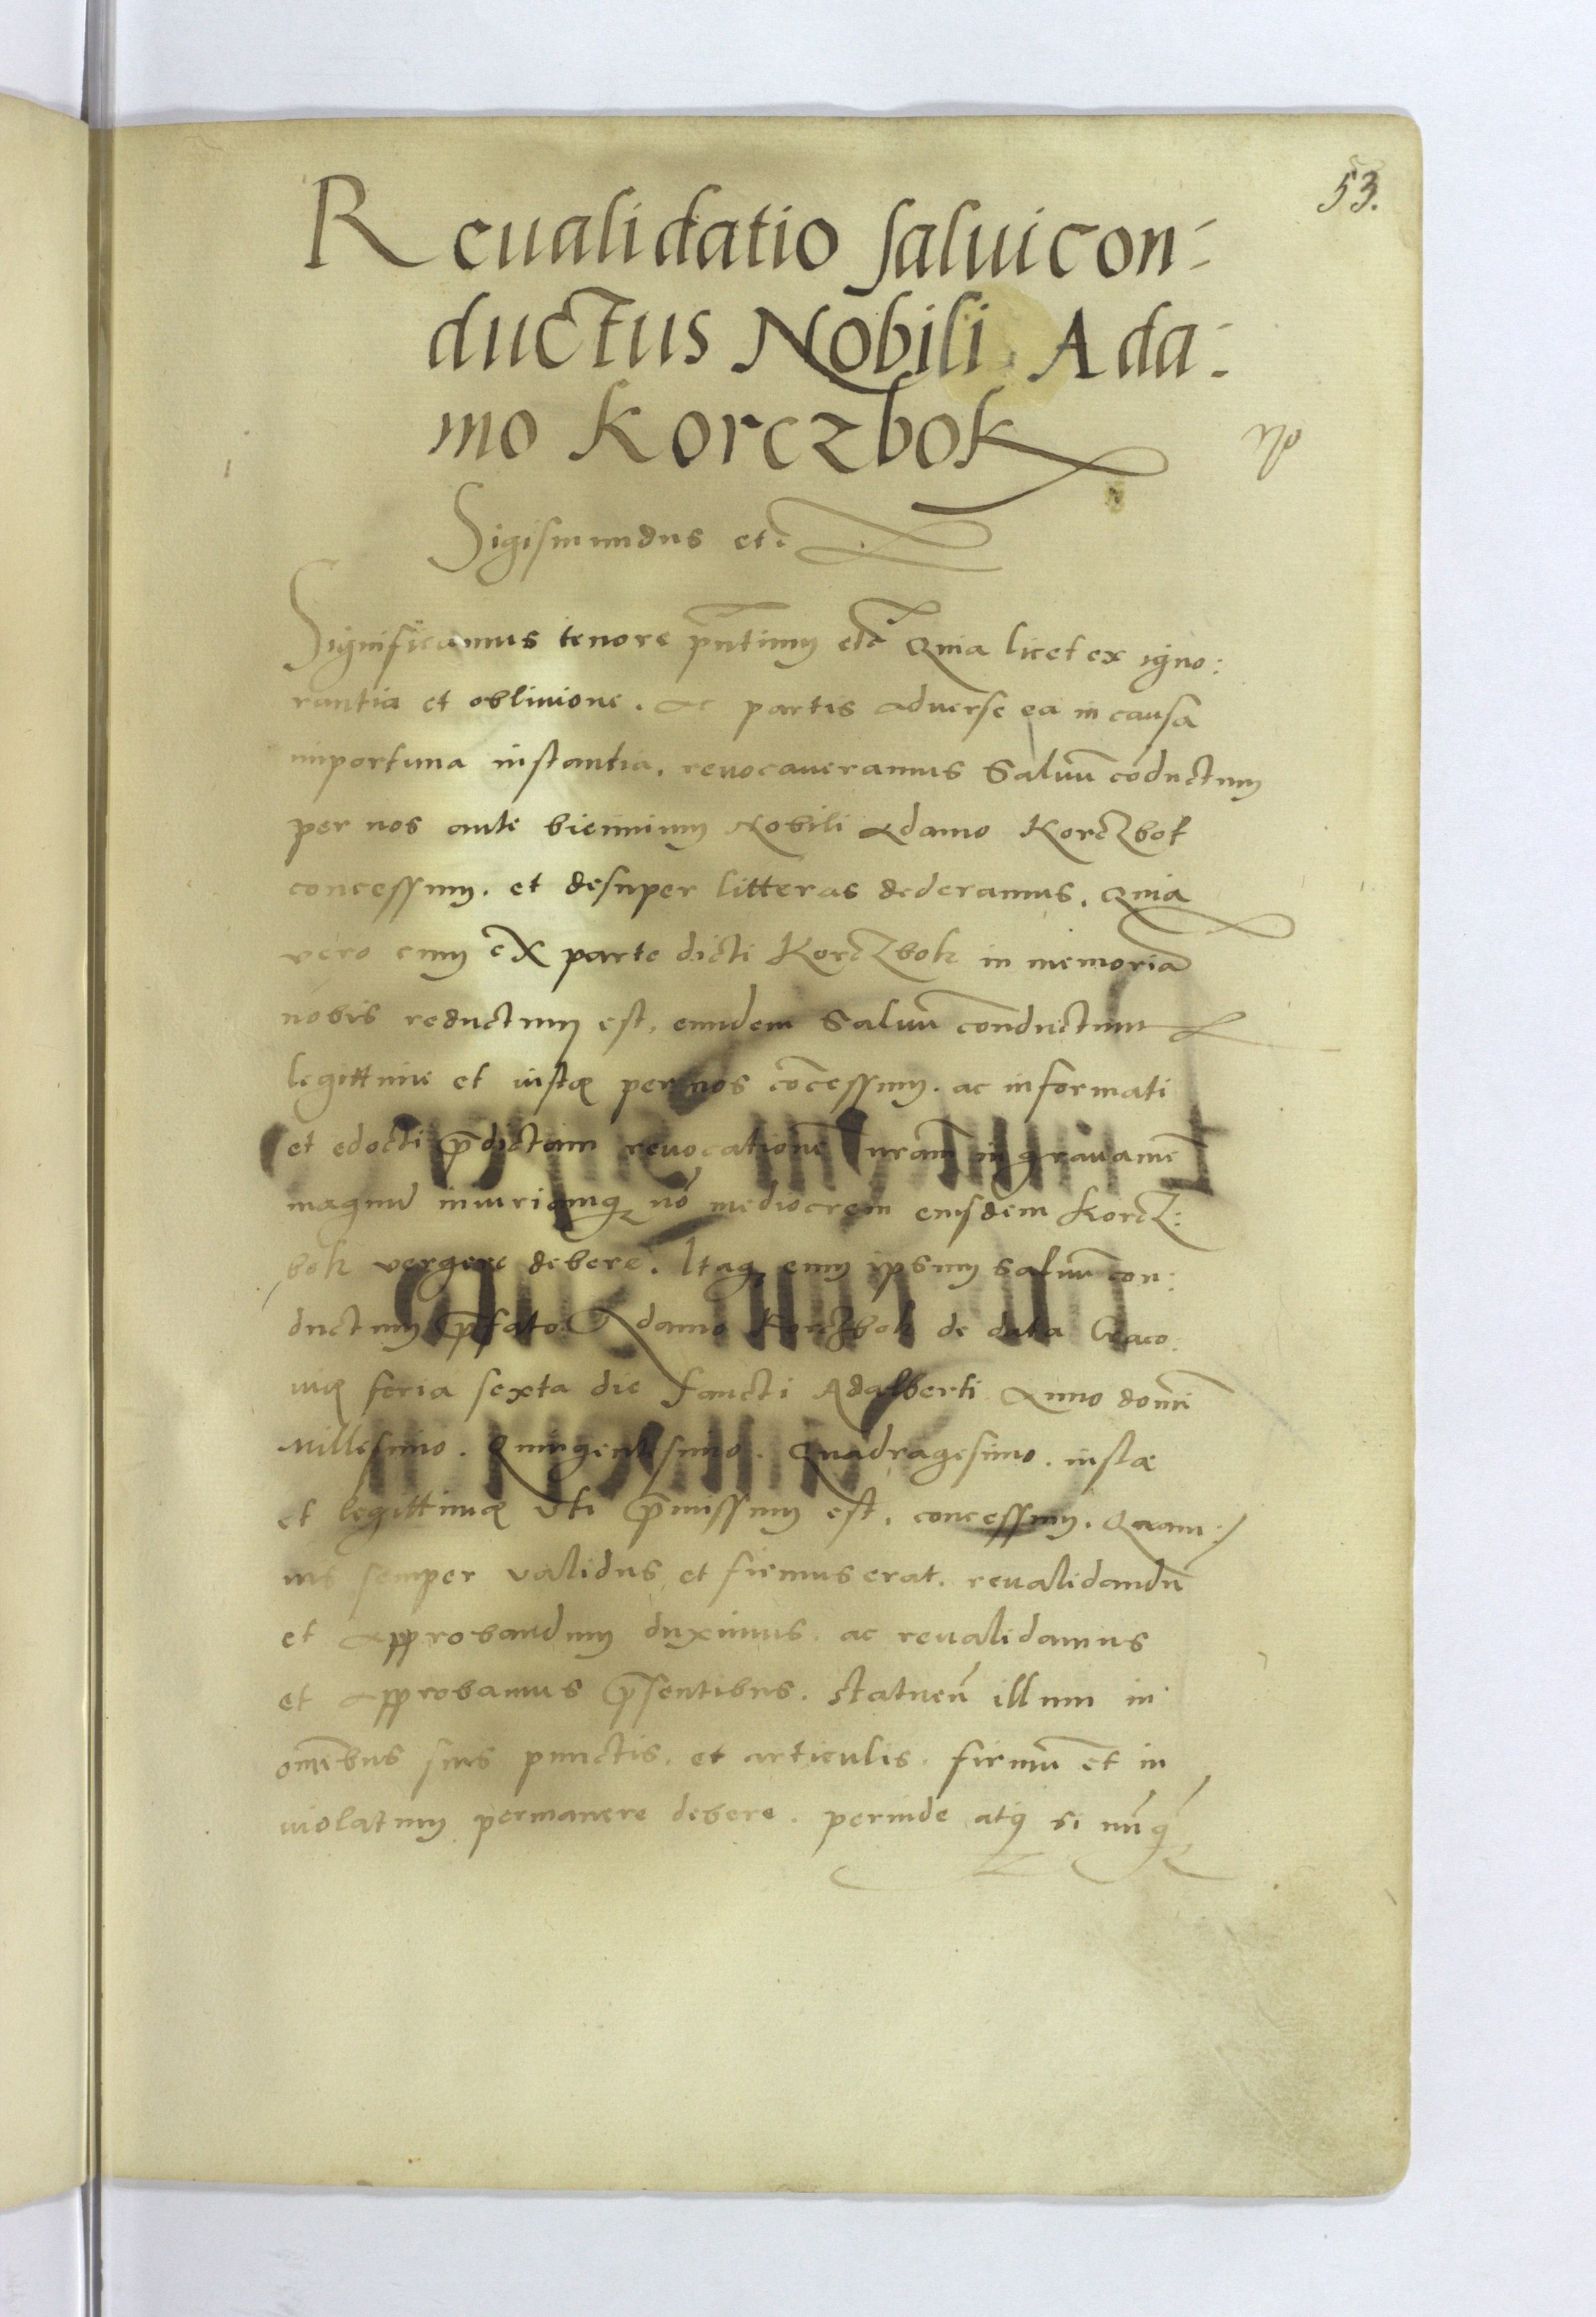 53.
Reualidatio saluicon-
ductus Nobili Ada-
mo Korczbok
Sigismundus etc
Significamus tenore p̄ntium etc̄ Quia licet ex igno:
rantia et obliuione. ac partis aduerse ea in causa
importuna instantia. reuocaueramus Saluū cōductum
per nos ante biennium Nobili Adamo Korczbok
concessum. et desuper litteras dederamus. Quia
vero cum ex parte dicti Korczbok in memoriā
nobis reductum est, eundem Saluū conductum
legittime et iustę per nos cōcessum. ac informati
et edocti p̄dictam reuocationē nr̄am in grauamē
magnū iniuriamq; nō mediocrem eiusdem Korcz:
bok vergere debere. Itaq; eum ipsum saluū con:
ductum p̄fato Adamo Korczbok de data Craco
uię feria sexta die sancti Adalberti Anno domi
Millesimo. Quingentesimo. Quadragesimo. iustæ
et legittimę vti p̄missum est. concessum. Quam:
uis semper validus et firmus erat. reualidandū
et approbandum duximus. ac reualidamus
et approbamus p̄sentibus. statuen̄ illum in
omībus suis punctis. et articulis. firmū et in
uiolatum permanere debere. perinde atq; si nūq;